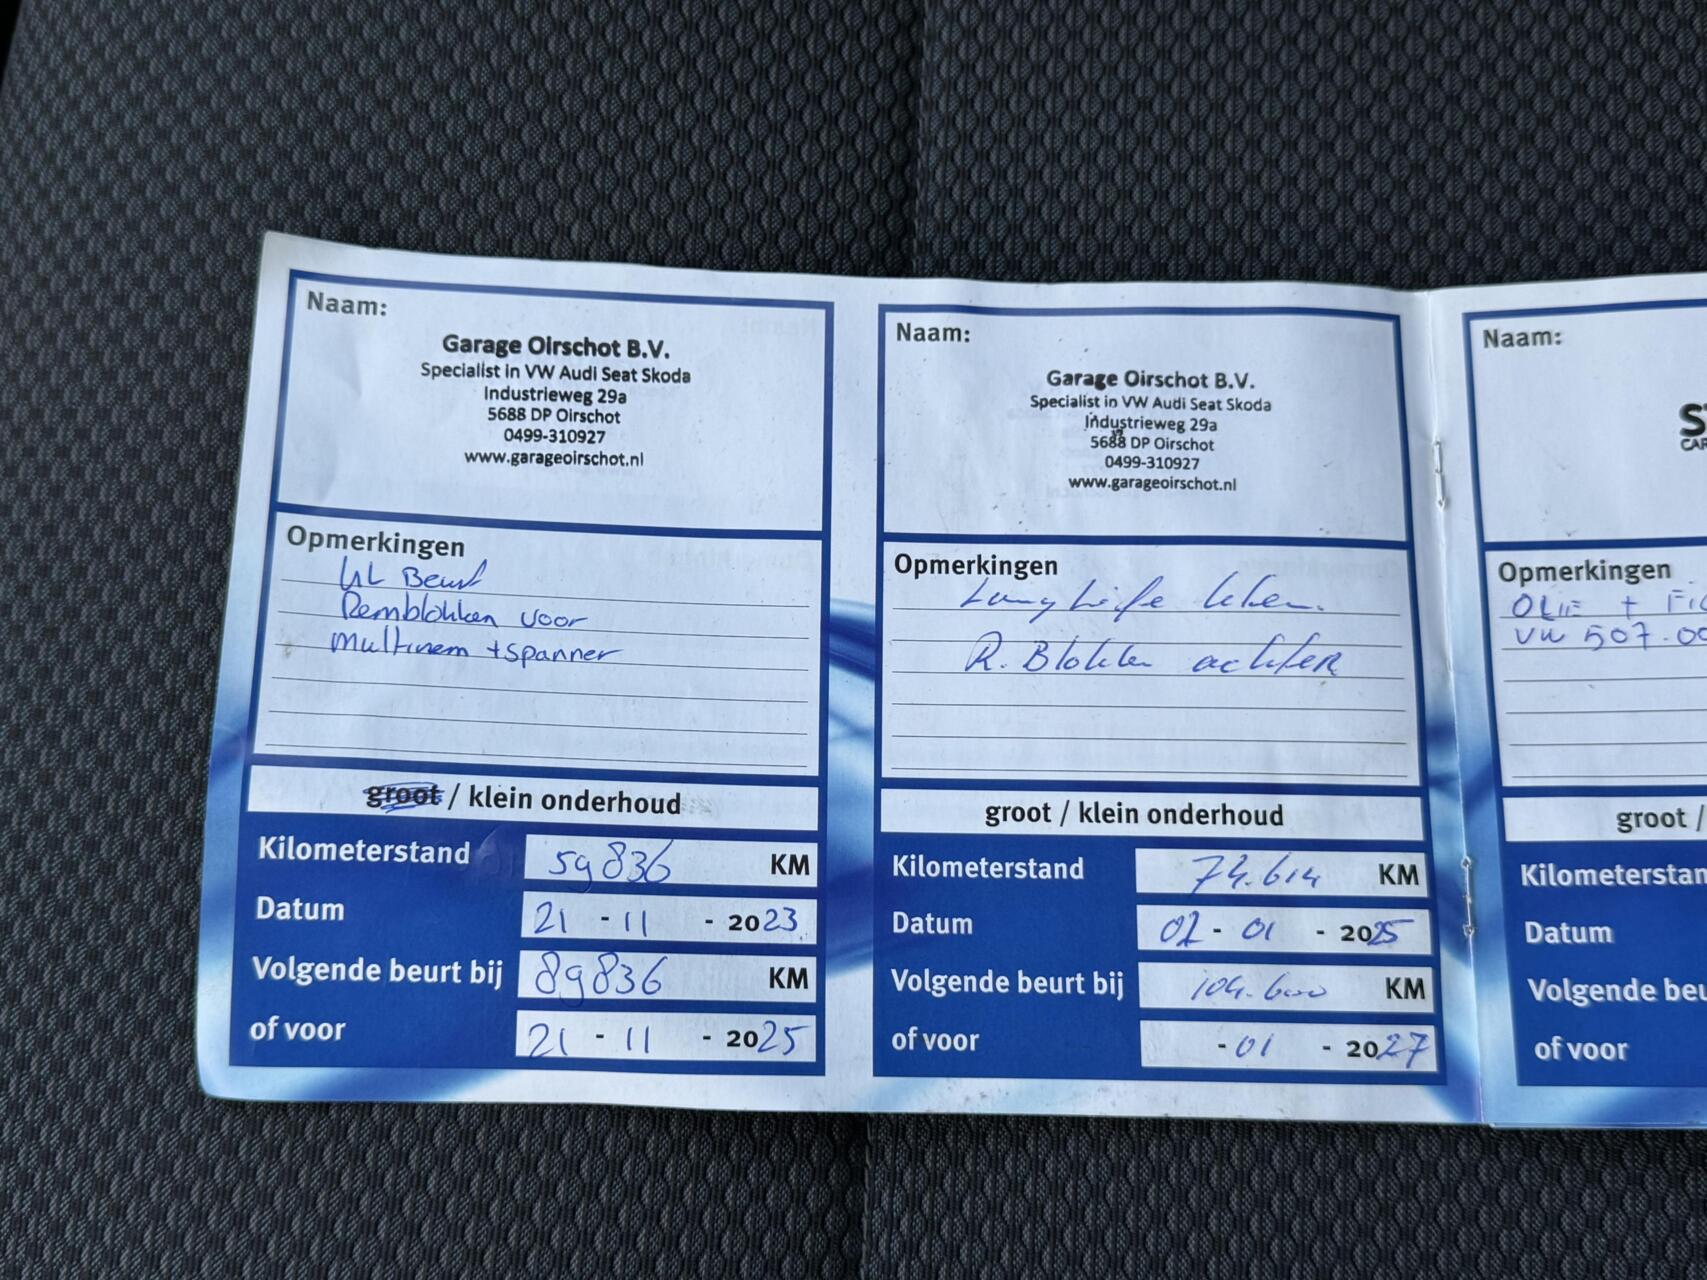 Naam:
Garage Oirschot B.V.
Specialist in VW Audi Seat Skoda
Industrieweg 29a
5688 DP Oirschot
0499-310927
www.garageoirschot.nl
Opmerkingen
LL Beurt
Remblokken voor
Multiriem +spanner
groot / klein onderhoud
Kilometerstand 59836 KM
Datum 21 - 11 - 2023
Volgende beurt bij 89836 KM
of voor 21 - 11 - 2025
Naam:
Garage Oirschot B.V.
Specialist in VW Audi Seat Skoda
Industrieweg 29a
5688 DP Oirschot
0499-310927
www.garageoirschot.nl
Opmerkingen
Longlife
R. Blokken achter
groot / klein onderhoud
Kilometerstand 74.614 KM
Datum 02 - 01 - 2025
Volgende beurt bij 104.600 KM
of voor - 01 - 2027
Naam:
Opmerkingen
OLIE +
VW 507.00
groot /
Kilometerstan
Datum
Volgende beu
of voor